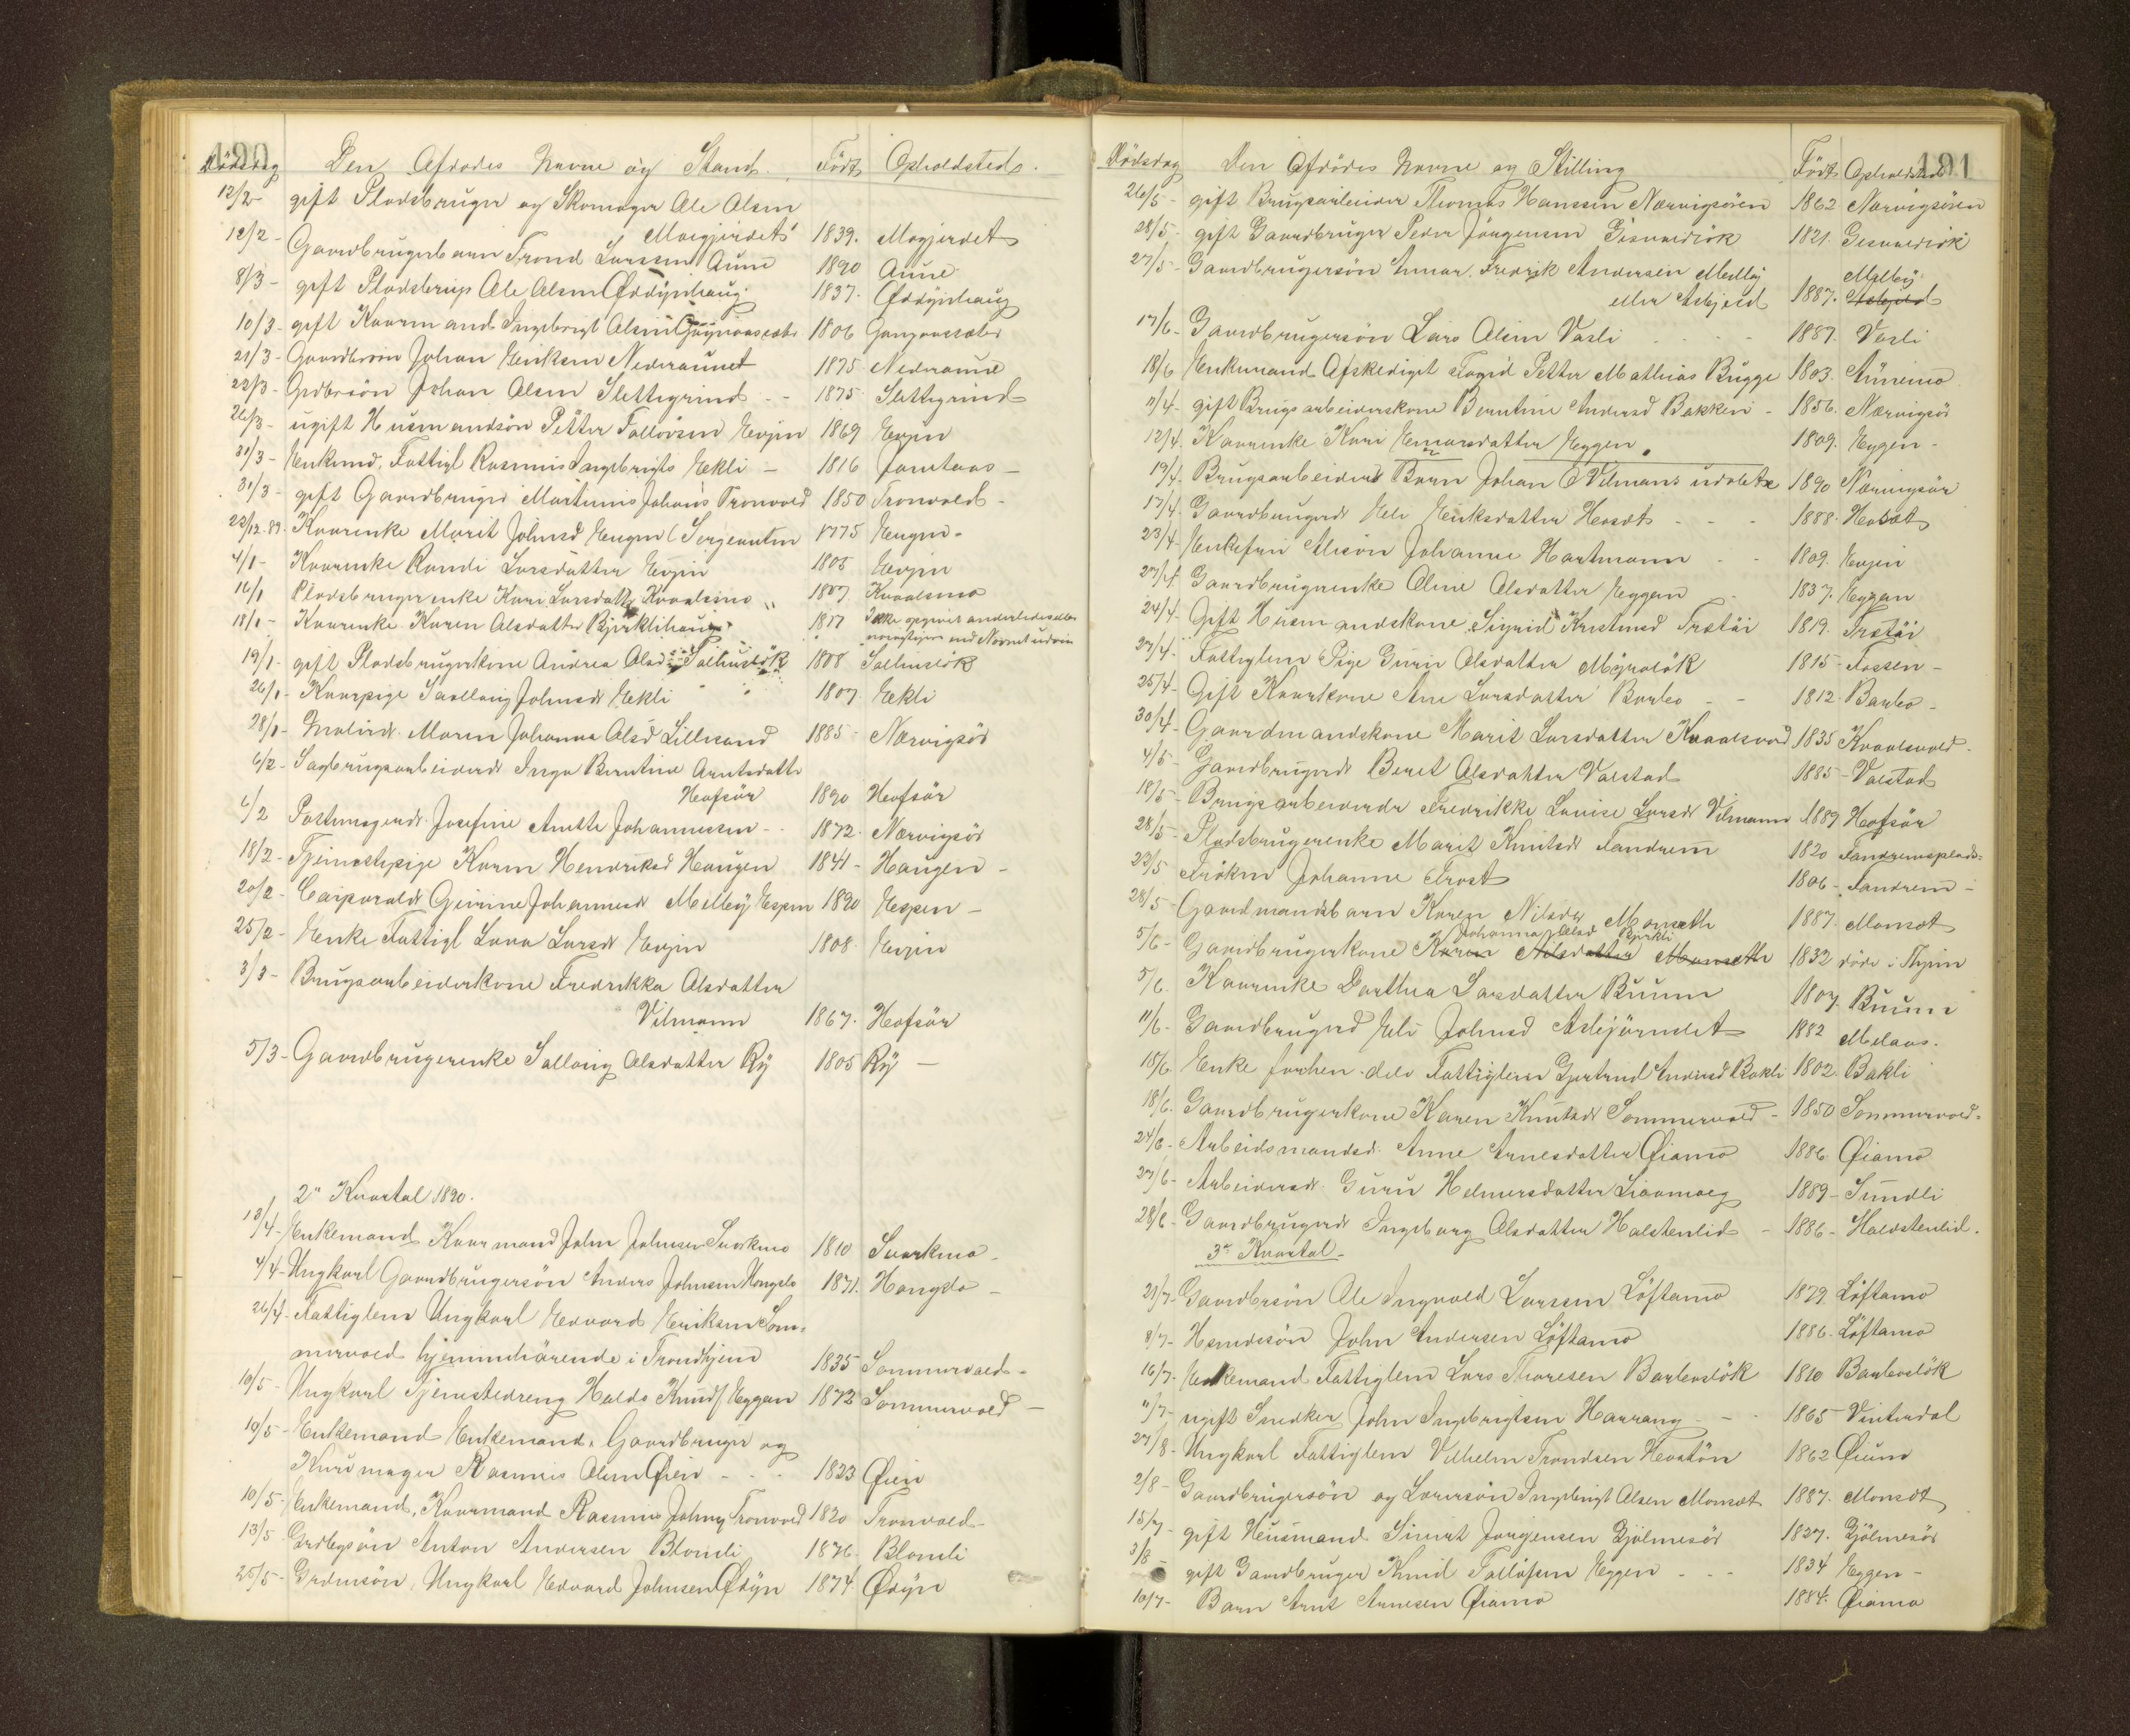 190
Dödsdag Den Afdödes Navne og Stand. Födt Opholdsted.
12/2 - gift Pladsbruger og Skomager Ole Olsen
Moegjerdet 1839. Mogjerdet
12/2 - Gaardbrugerbarn Trond Larssen Aune 1890 Aune
8/3 - gift Pladsbrug Ole Olsen Öddynhaug 1837. Öddynhaug
10/3 - gift Kaarmand Ingebrigt Olsen 1806
21/3 - Gaardbrsön Johan Eriksen Nederaunet 1875 Nederaune
22/3 - Grdbrsön Johan Olsen Slettegrind - - 1875 Slettegrind
26/3 - ugift Husmandsön Petter Tollövsen Evjen 1869 Evjen
31/3 - Enkemd. Fattigl Rasmus Ingebrigts Ekli - 1816 -
31/3 - gift Gaardbruger Martinus Johans Tronvold 1850 Tronvold -
22/12-89. Kaarenke Marit Johnsd Heugen (Sergeanten 1775 Heugen -
4/1 - Kaarenke Randi Larsdatter Evjen 1806 Evjen
16/1 Pladsbrugerenke Kari Larsdatter Kvaalsmo " 1807. Kvaalsmo
18/1 - Kaarenke Karen Olsdatter Bjerklihaug 1817 Ikke opgivet anderledes eller
nöiagtigere end Navnet udviser
19/1 - gift Pladsbrugerkone Andrea Olsd Solhuslök 1808 Solhuslök
26/1 - Kaarpige Sollaug Johnsdr Ekli 1807. Ekli
28/1 - Malerdr. Maren Johanna Olsd Lillesand 1885 - Nærvigsör
6/2 - Sagbrugsarbeiderdr Inga Berntine Arntsdatter
Hofsör 1890 Hofsör
6/2 Postmagerdr. Josefine Anette Johannessen - - 1872. Nærvigsör
18/2 - Tjenestepige Karen Hendriksd Haugen 1841 - Haugen -
20/2 - Corporaldr Gurine Johannesdr Melby Espen 1890 Espen -
25/2 - Enke Fattigl Lava Larsdr Evjen 1808. Evjen
3/3 - Brugsarbeiderkone Fredrikka Olsdatter
Vilmann 1867. Hofsör
5/3 - Gaardbrugerenke Sollaug Olsdatter Ry 1805 Ry -
2" Kvartal 1890.
13/4 - Enkemand Kaarmand John Johnsen Svorkmo 1810 Svorkmo -
4/4 - Ungkarl Gaardbrugersön Anders Johnsen Hongslo 1871. Hongslo -
26/4 - Fattiglem Ungkarl Edvard Eriksen Som=
mervold hjemmehörende i Trondhjem 1835 Sommervold -
10/5 - Ungkarl Tjenestedreng Haldo Knuds Eggan 1872 Sommervold -
19/5 - Enkemand Enkemand. Gaardbruger og
Kurvmager Rasmus Olsen Öien - - - 1823 Öien
10/5 - Enkemand, Kaarmand Rasmus Johns Tronvold 1820 Tronvold -
13/5 - Grdbgsön Anton Andersen Blomli 1876. Blomli
25/5 - Grdmsön, Ungkarl Edvard Johnsen Ödyn 1874. Ödyn
191
Dödsdag Den Afdödes Navne og Stilling Födt Opholdsted
26/5 - gift Brugsarbeider Thomas Hanssen Nærvigsören 1862 Nærvigsören
28/5 - gift Gaardbruger Peder Jörgensen 1821.
27/5 - Gaardbrugersön Einar Fredrik Andersen Melby Melby
eller Asbjeld 1887. Asbjeld
17/6 - Gaardbrugersön Lars Olsen Vasli - - - 1887. Vasli
18/6 Enkemand Afskediget Foged Petter Mathias Brügge 1803. Aünemo
11/4 - gift Brugsarbeiderskone Berntine Andersd Bakken - 1856. Nærvigsör
12/4. Kaarenke Kari Einarsdatter Eggen. 1809. Eggen -
19/4. Brugsarbeiders Barn Johan O Vilmans udöbte 1890 Nærvigsör
17/4. Gaardbrugerdr Eli Eriksdatter Hovsæt - - - 1888. Hovsæt
23/4 - Enkefru Alison Johanne Hartmann - - 1809. Evjen
27/4. Gaardbrugerenke Oline Olsdatter Eggan - 1837. Eggan
24/4. Gift Husmandskone Sigrid Kristensd Trætöi 1819. Trætöi
27/4. Fattiglem Pige Guri Olsdatter Myrslök 1815 - Fossen -
25/4 - Gift Kaarkone Ane Larsdatter Barbo - - 1812. Barbo -
30/4 - Gaardmandskone Marit Larsdatter Kvaalsvold 1835 Kvaalsvold -
4/5 - Gaardbrugerdr Beret Olsdatter Valstad 1885 - Valstad
18/5 - Brugsarbeiderdr Fredrikke Lovise Larsdr Vilmann 1889 Hofsör
28/5 - Pladsbrugerenke Marit Knutsdr Fandrem 1820 Fandremsplads -
23/5 Fröken Johanne Frost 1806 - Fandrem -
28/5 - Gaardmandsbarn Karen Nilsdr Monseth 1887. Monsæt
Johanna Olsd Bjerkli
5/6 - Gaardbrugerkone Karen Nilsdatter Monseth 1832 döde i Thjem
5/6. Kaarenke Dorthea Larsdatter Buum 1807. Buum
11/6 - Gaardbrugerd Eli Johnsd Asbjörnslet 1882 Melaas.
15/6. Enke forhen. dels Fattiglem Gjertrud Andersd Bakli 1802. Bakli
18/6. Gaardbrugerkone Karen Knutsdr Sommervold - 1850 Sommervold -
24/6 - Arbeidsmandsd. Anne Arnesdatter Öiamo 1886. Öiamo
27/6 - Arbeidersdr. Guru Helmersdatter 1889 - Sundli
28/6 - Gaardbrugerdr Ingeborg Olsdatter Halstenlid - 1886 - Halstenlid.
3" Kvartal -
21/7 - Gaardbrsön Ole Ingvald Larssen Löftamo 1879. Löftamo
8/7 - Hsmdssön John Andersen Löftamo 1886. Löftamo
16/7 - Enkemand Fattiglem Lars Thoresen Barboslök 1810 Barboslök
11/7 - ugift Snedker John Ingebrigtsen Harrang - - 1865 - Vinterdal
27/8 - Ungkarl Fattiglem Vilhelm Trondsen Hovstön 1862
2/8 - Gaardbrugersön og Lærersön Ingebrigt Olsen Monsæt 1887. Monsæt
15/7 - gift Husmand Sivert Jörgensen Gjölmesör 1827. Gjölmesör
3/8 - gift Gaardbruger Knud Tollöfsen Eggen - - - 1834 Eggen -
10/7 - Barn Arnt Arnesen Öiamo 1884. Öiamo